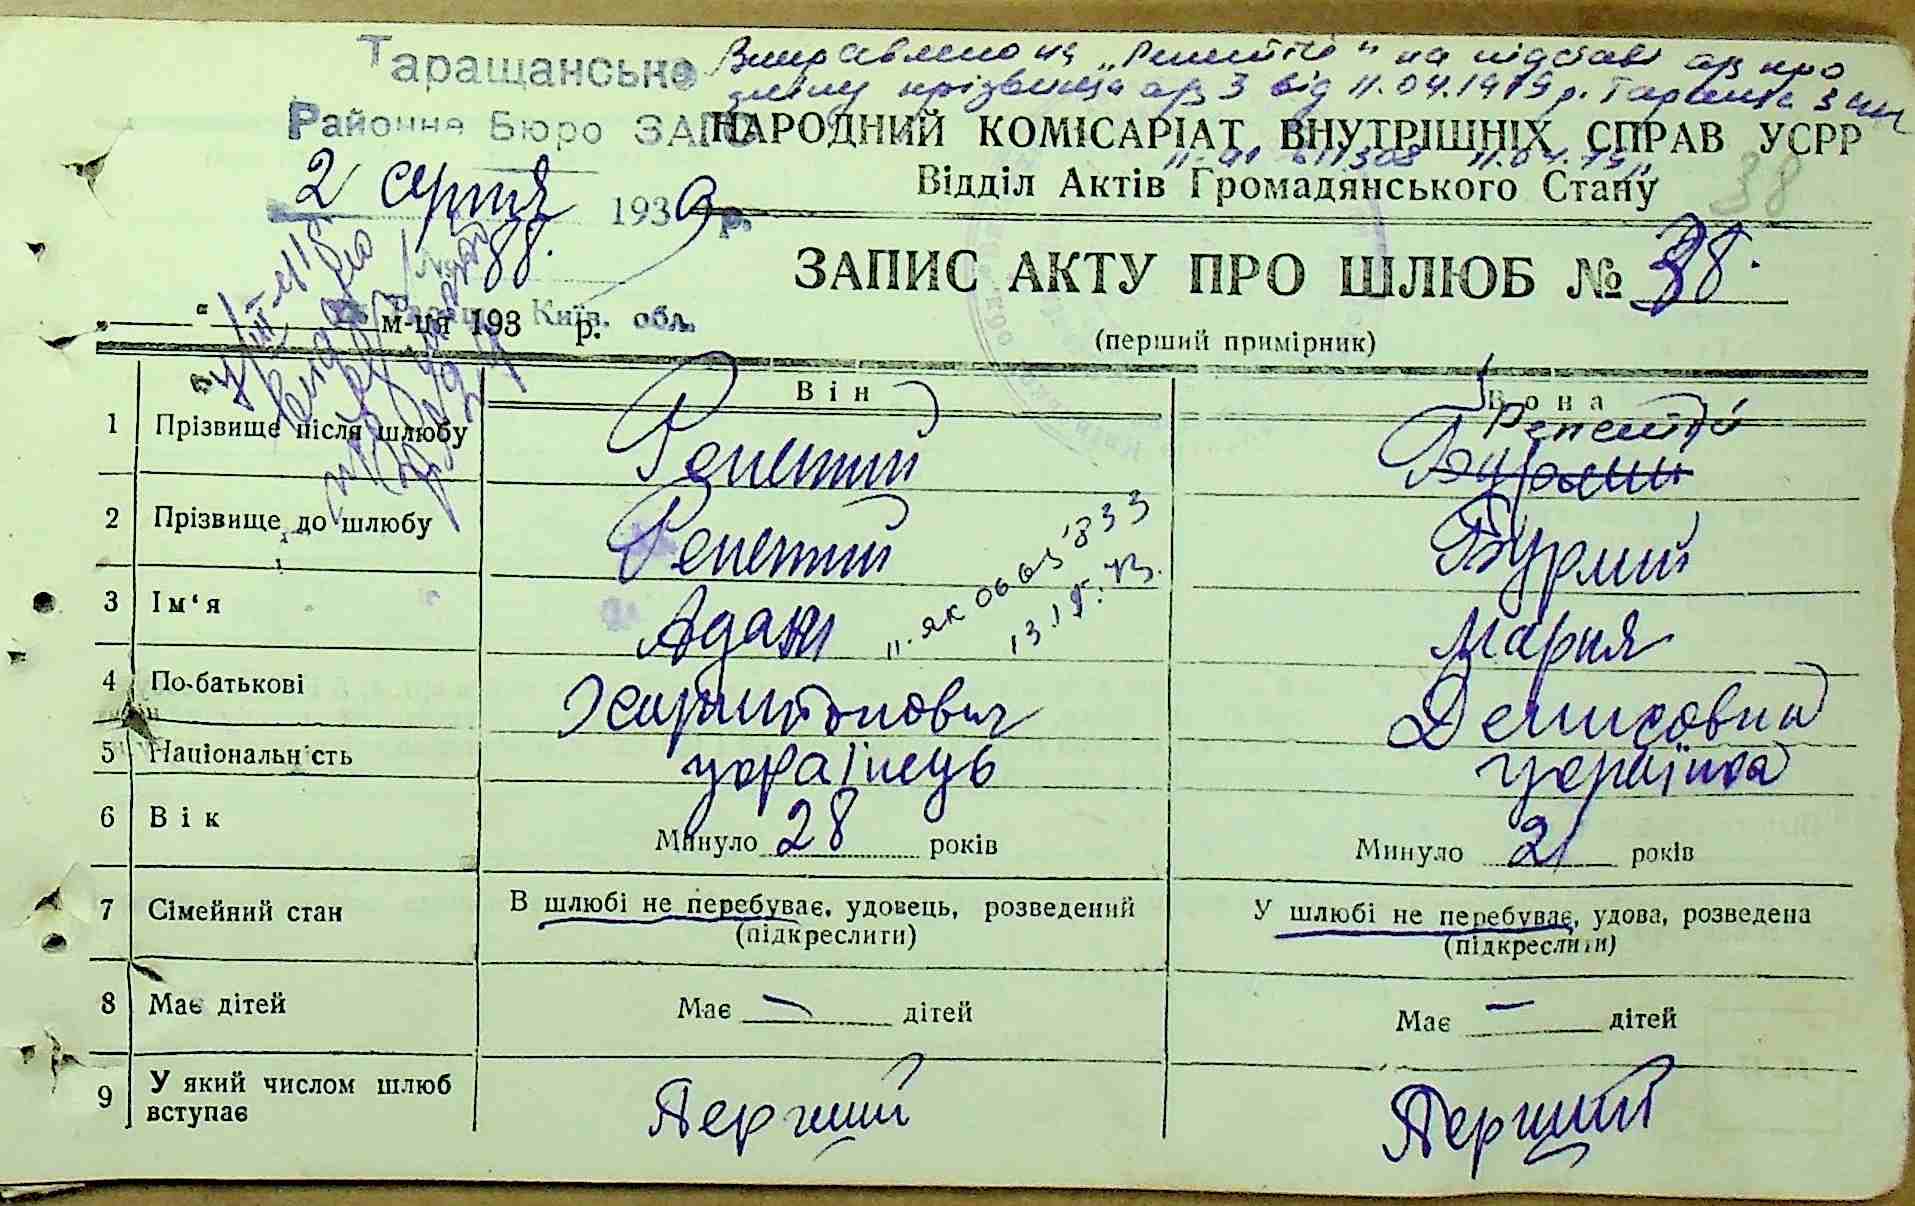 Таращанське
Виправлено на „Репетій“ на підставі а/з про
зміну прізвища а/з 3 від 11.04.1979 р.
Районне Бюро ЗАГС
НАРОДНИЙ КОМІСАРІАТ ВНУТРІШНІХ СПРАВ УСРР
Відділ Актів Громадянського Стану
38
2 серпня 1939 р.
№ 88.
ЗАПИС АКТУ ПРО ШЛЮБ № 38.
Київ. обл.
„ “ м-ця 193 р.
(перший примірник)
Він
Вона
1 Прізвище після шлюбу Репетий Репетій Бурлий
2 Прізвище до шлюбу Репетий Бурлий
3 Ім‘я Адам Мария
4 По-батькові Харитонович Денисовна
5 Національність українець українка
6 Вік Минуло 28 років Минуло 21 років
7 Сімейний стан В шлюбі не перебуває, удовець, розведений У шлюбі не перебуває, удова, розведена
(підкреслити) (підкреслити)
8 Має дітей Має — дітей Має — дітей
9 У який числом шлюб вступає Перший Перший